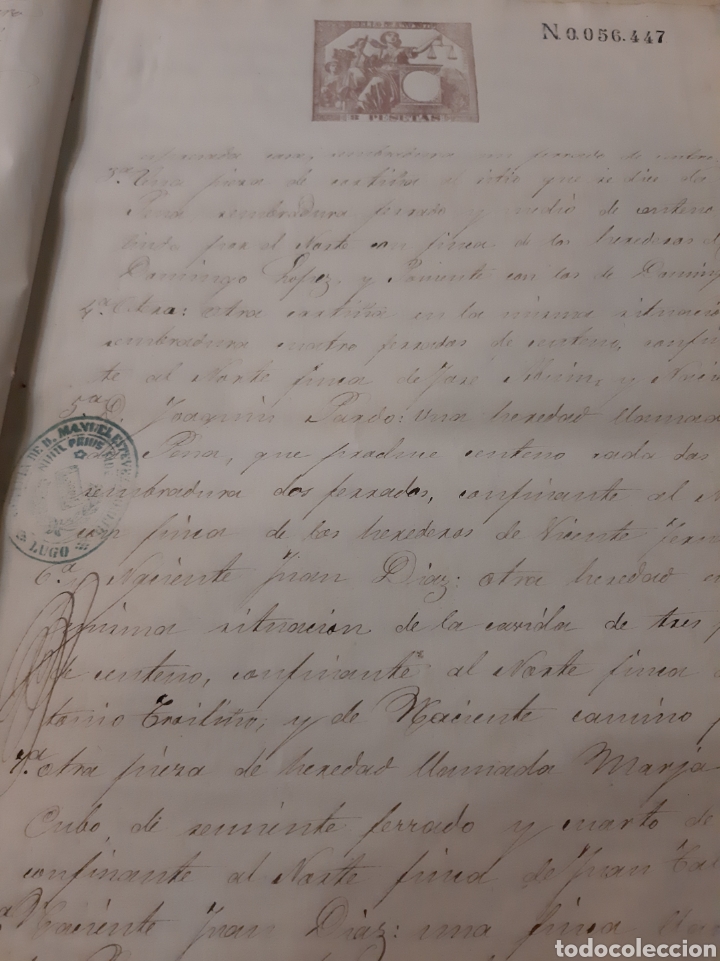 N 0.056.447
PESETAS
3ª Una pieza de cortiña al sitio que se dice da
Pena sembradura ferrado y medio de centeno
linda por el Norte con finca de los herederos d
Domingo Lopez, y Poniente con los de Doming
4ª Otra: otra cortiña en la misma situacio
sembradura cuatro ferrados de centeno, confin
te al Norte finca de Jose
5ª D. Joaquin Pardo: una heredad llamada
Pena, que produce centeno cada dos
sembradura dos ferrados, confinante al N
con finca de los herederos de Vicente
6ª y Naciente Juan Diaz: otra heredad
misma situacion de la cavida de tres
de centeno, confinante al Norte finca
tonio y de Naciente camino
7ª otra pieza de heredad llamada Marja
Cubo, de semiente ferrado y cuarto de
confinante al Norte finca de Juan
Naciente Juan Diaz: una finca
DE D. MANUEL
LUGO
todocoleccion.net